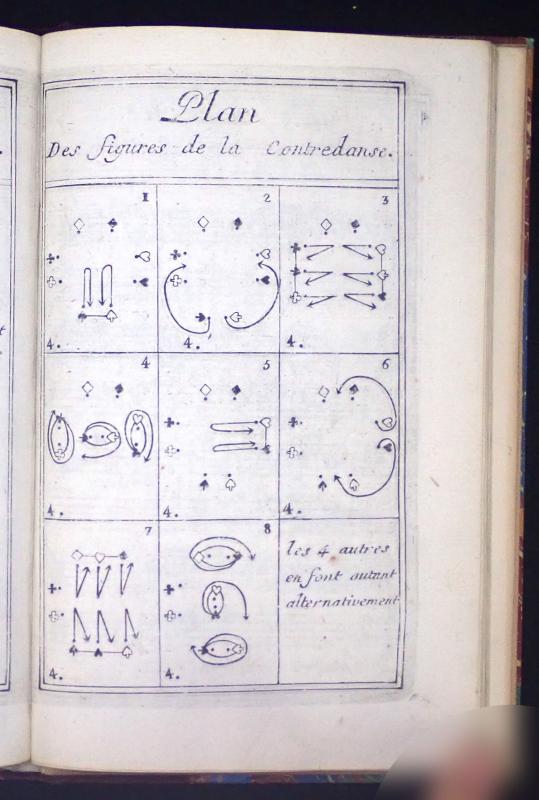 Plan
Des figures de la Contredanse.
1
4.
2
4.
3
4.
4
4.
5
4.
6
4.
7
4.
8
4.
les 4 autres
en font autant
alternativement